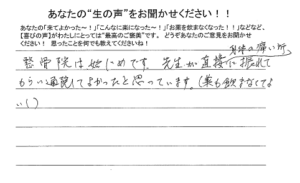 あなたの"生の声"をお聞かせください！！
あなたの「来てよかったー！」「こんなに楽になったー！」「お薬を飲まなくなった！！」などなど、
【喜びの声】がわたしにとっては"最高のご褒美"です。 どうぞあなたのご意見をお聞かせ
ください！ 思ったことを何でも教えてくださいね！
身体の痛い所
整骨院は始めてです。先生が直接に振れて
もらい通院してよかったと思っています。（薬も飲まなくてもいい）